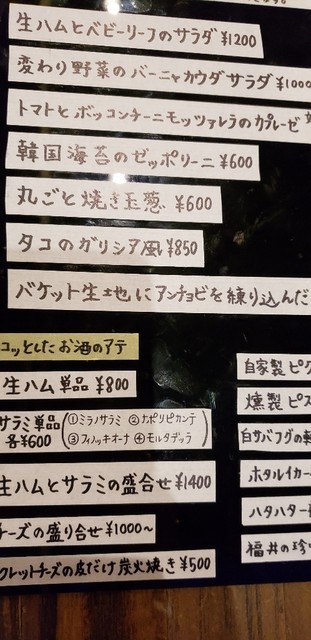 生ハムとベビーリーフのサラダ ¥1200
変わり野菜のバーニャカウダサラダ ¥1000
トマトとボッコンチーニモッツァレラのカプレーゼ
韓国海苔のゼッポリーニ ¥600
丸ごと焼き玉葱 ¥600
タコのガリシア風 ¥850
バケット生地にアンチョビを練り込んだ
コッとしたお酒のアテ
生ハム単品 ¥800
サラミ単品 各¥600
①ミラノサラミ ②ナポリピカンテ
③フィノッキオーナ ④モルタデッラ
生ハムとサラミの盛合せ ¥1400
チーズの盛り合せ ¥1000〜
クレットチーズの皮だけ炭火焼き ¥500
自家製ピク
燻製ピス
白サバフグの
ホタルイカ
ハタハタ
福井の珍